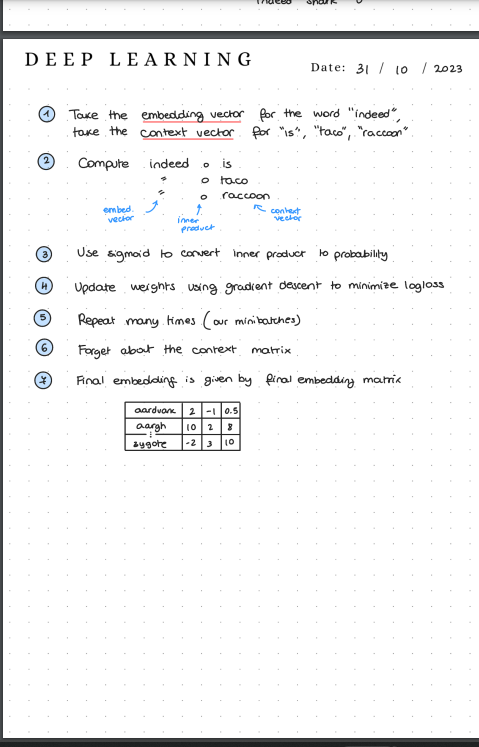 indeed shark
DEEP LEARNING
Date: 31 / 10 / 2023
1 Take the embedding vector for the word "indeed",
take the context vector for "is", "taco", "raccoon"
2 Compute indeed o is
" o taco
" o raccoon
embed. vector inner product context vector
3 Use sigmoid to convert inner product to probability
4 Update weights using gradient descent to minimize logloss
5 Repeat many times (our minibatches)
6 Forget about the context matrix
7 Final embedding is given by final embedding matrix
aardvark 2 -1 0.5
aargh 10 2 8
⋮
zygote -2 3 10